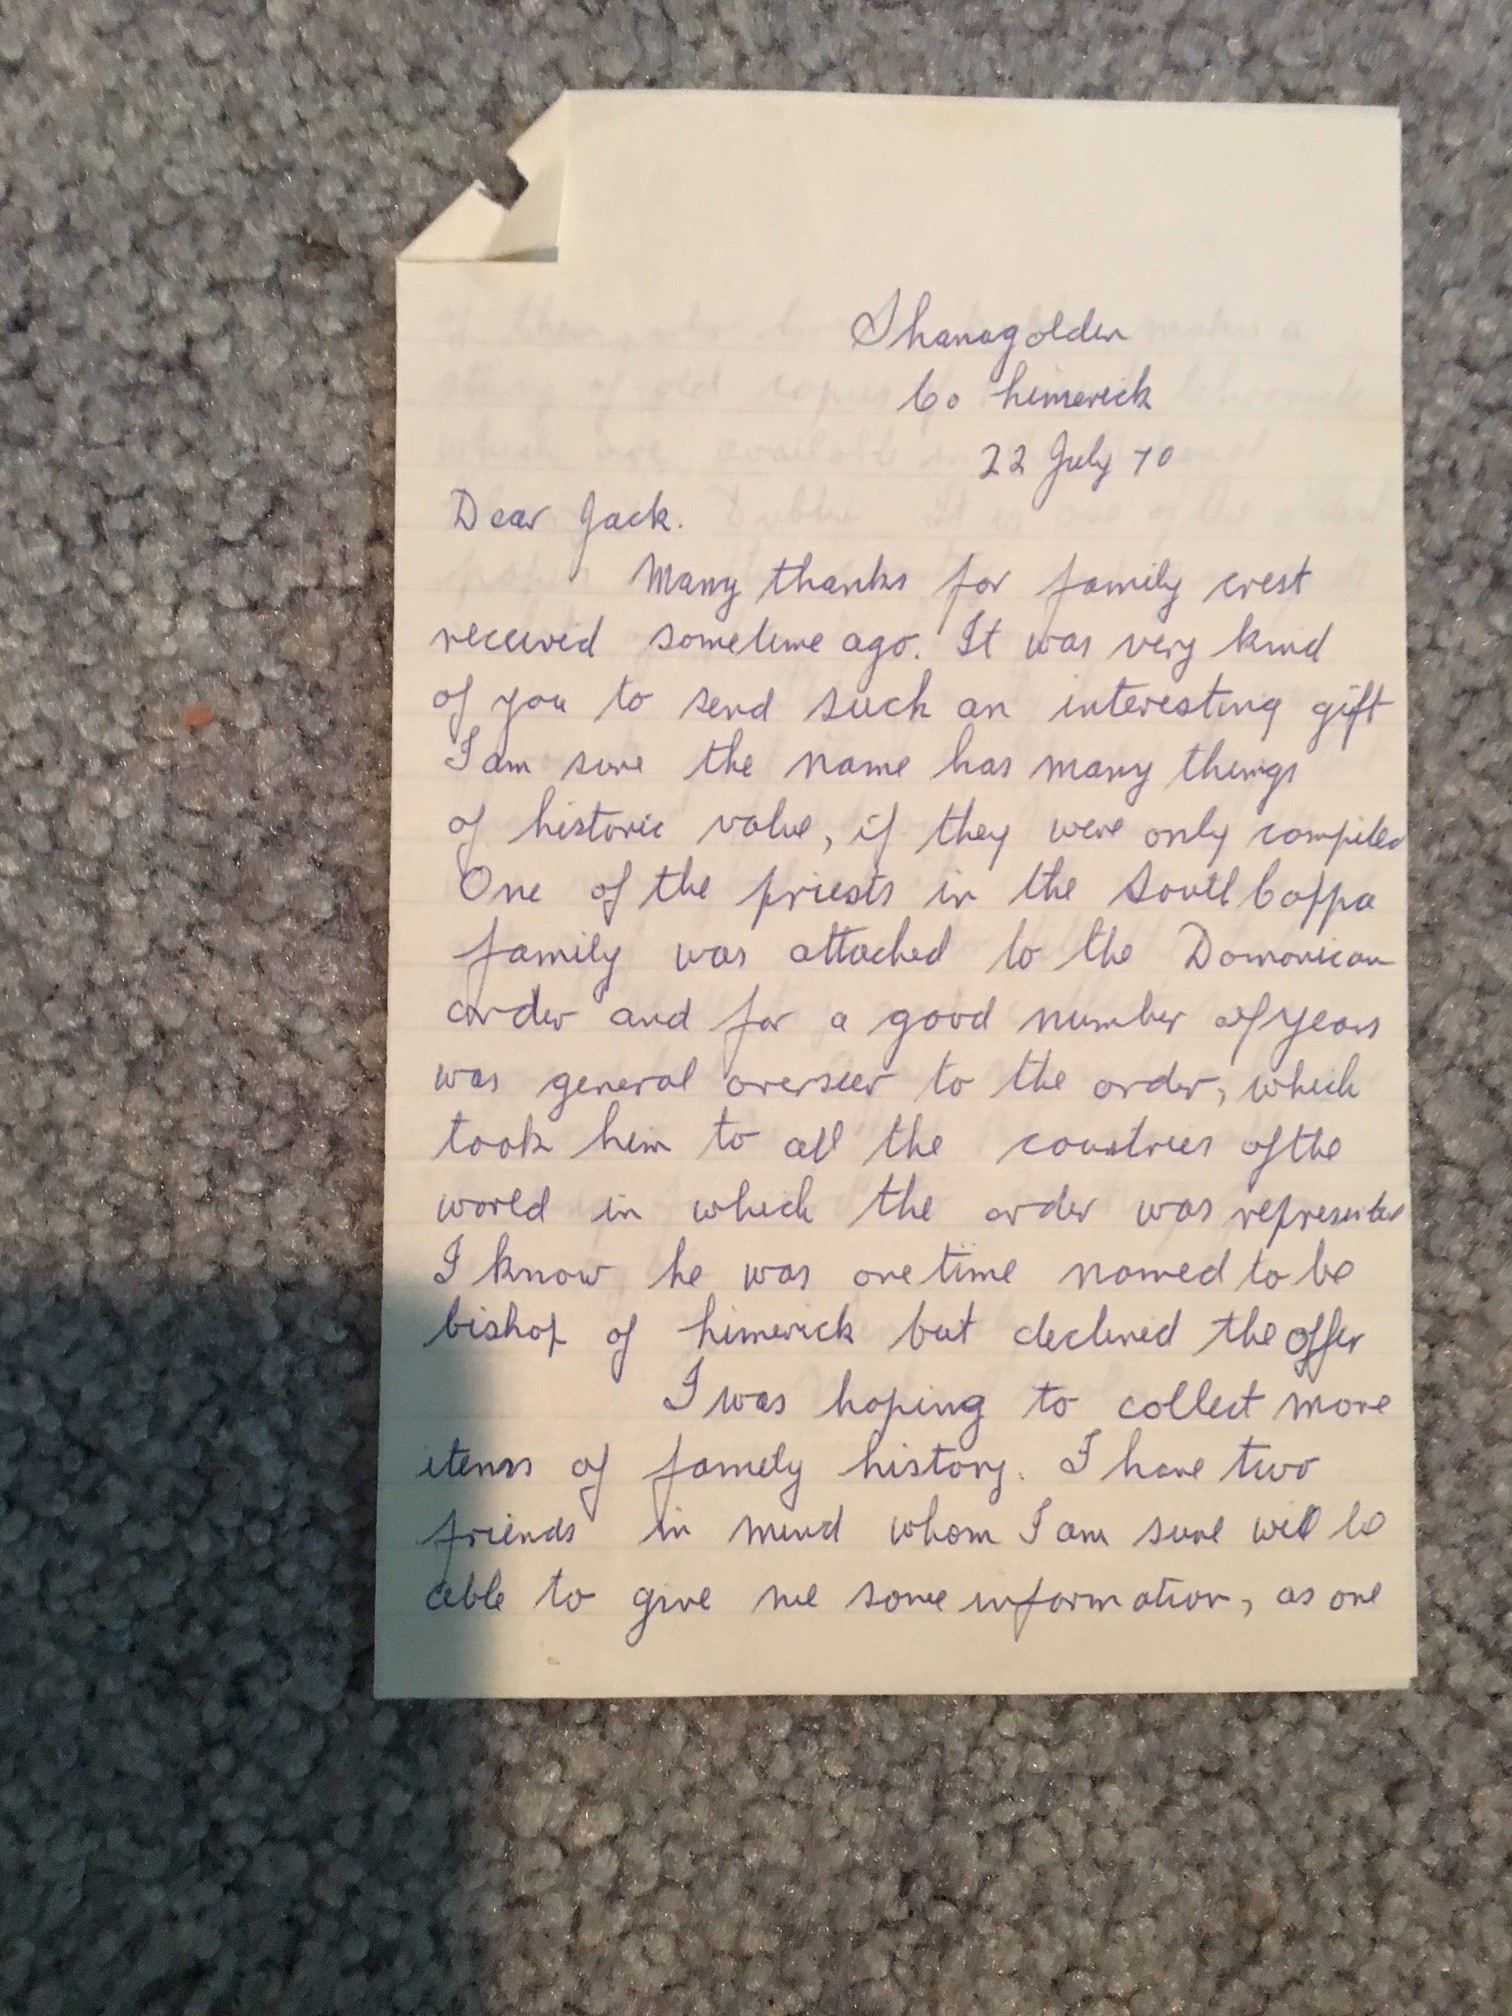 Shanagolden
Co Limerick
22 July 70
Dear Jack.
Many thanks for family crest
received sometime ago. It was very kind
of you to send such an interesting gift
I am sure the name has many things
of historic value, if they were only compiled
One of the priests in the Coppa
family was attached to the Domonican
order and for a good number of years
was general overseer to the order, which
took him to all the countries of the
world in which the order was represented
I know he was one time named to be
bishop of Limerick but declined the offer
I was hoping to collect more
items of family history. I have two
friends in mind whom I am sure will be
able to give me some information, as one